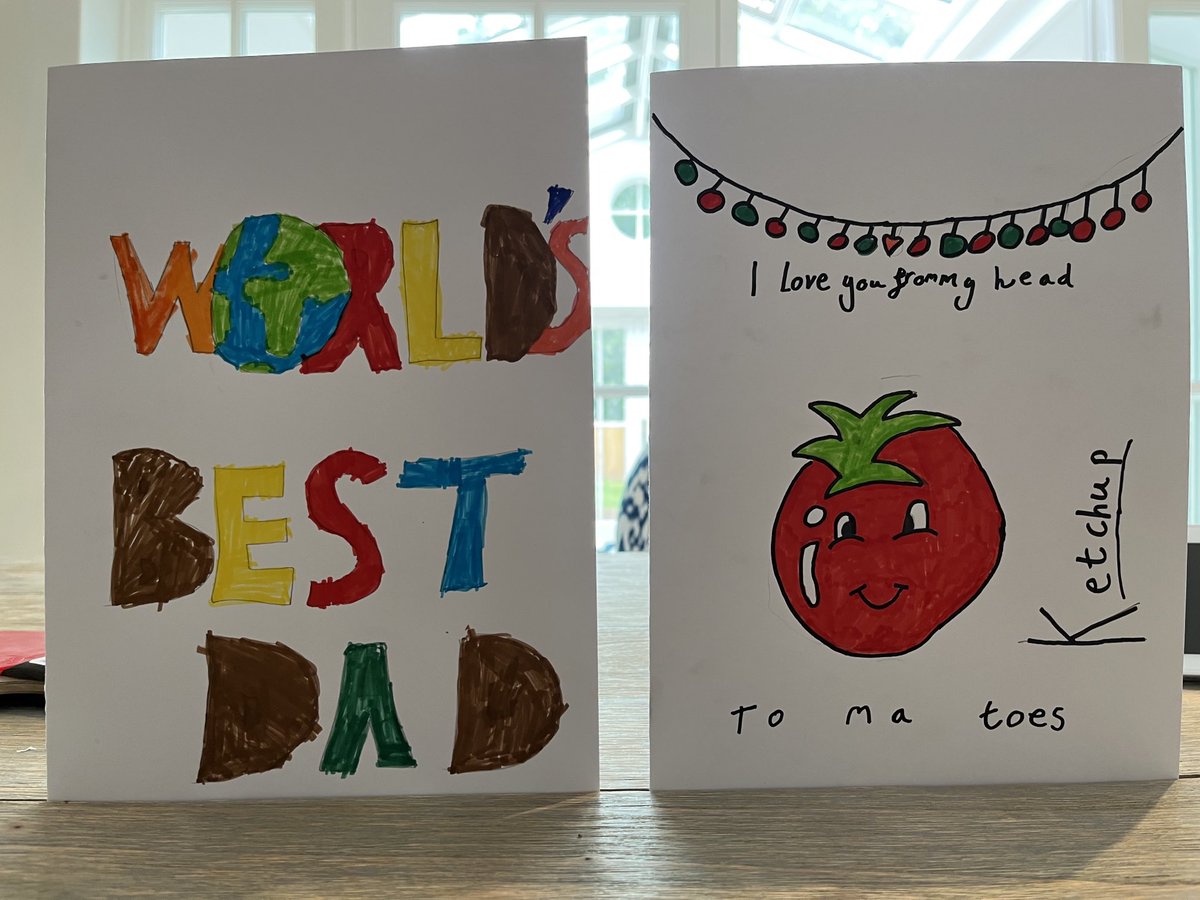 WORLD'S
BEST
DAD
I love you frommy head
Ketchup
To ma toes